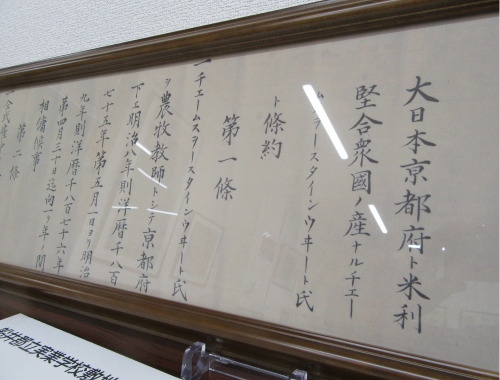 大日本京都府ト米利
堅合衆國ノ産ナルチエー
ムスヲースタインウヰート氏
ト條約
第一條
一チエームスヲースタインウヰート氏
ヲ農牧教師トシテ京都府
下ニ明治八年則洋暦千八百
七十五年第五月一日ヨリ明治
九年則洋暦千八百七十六年
第四月三十日迄向一ケ年ノ間
相傭候事
第二條
船井郡立実業学校敷